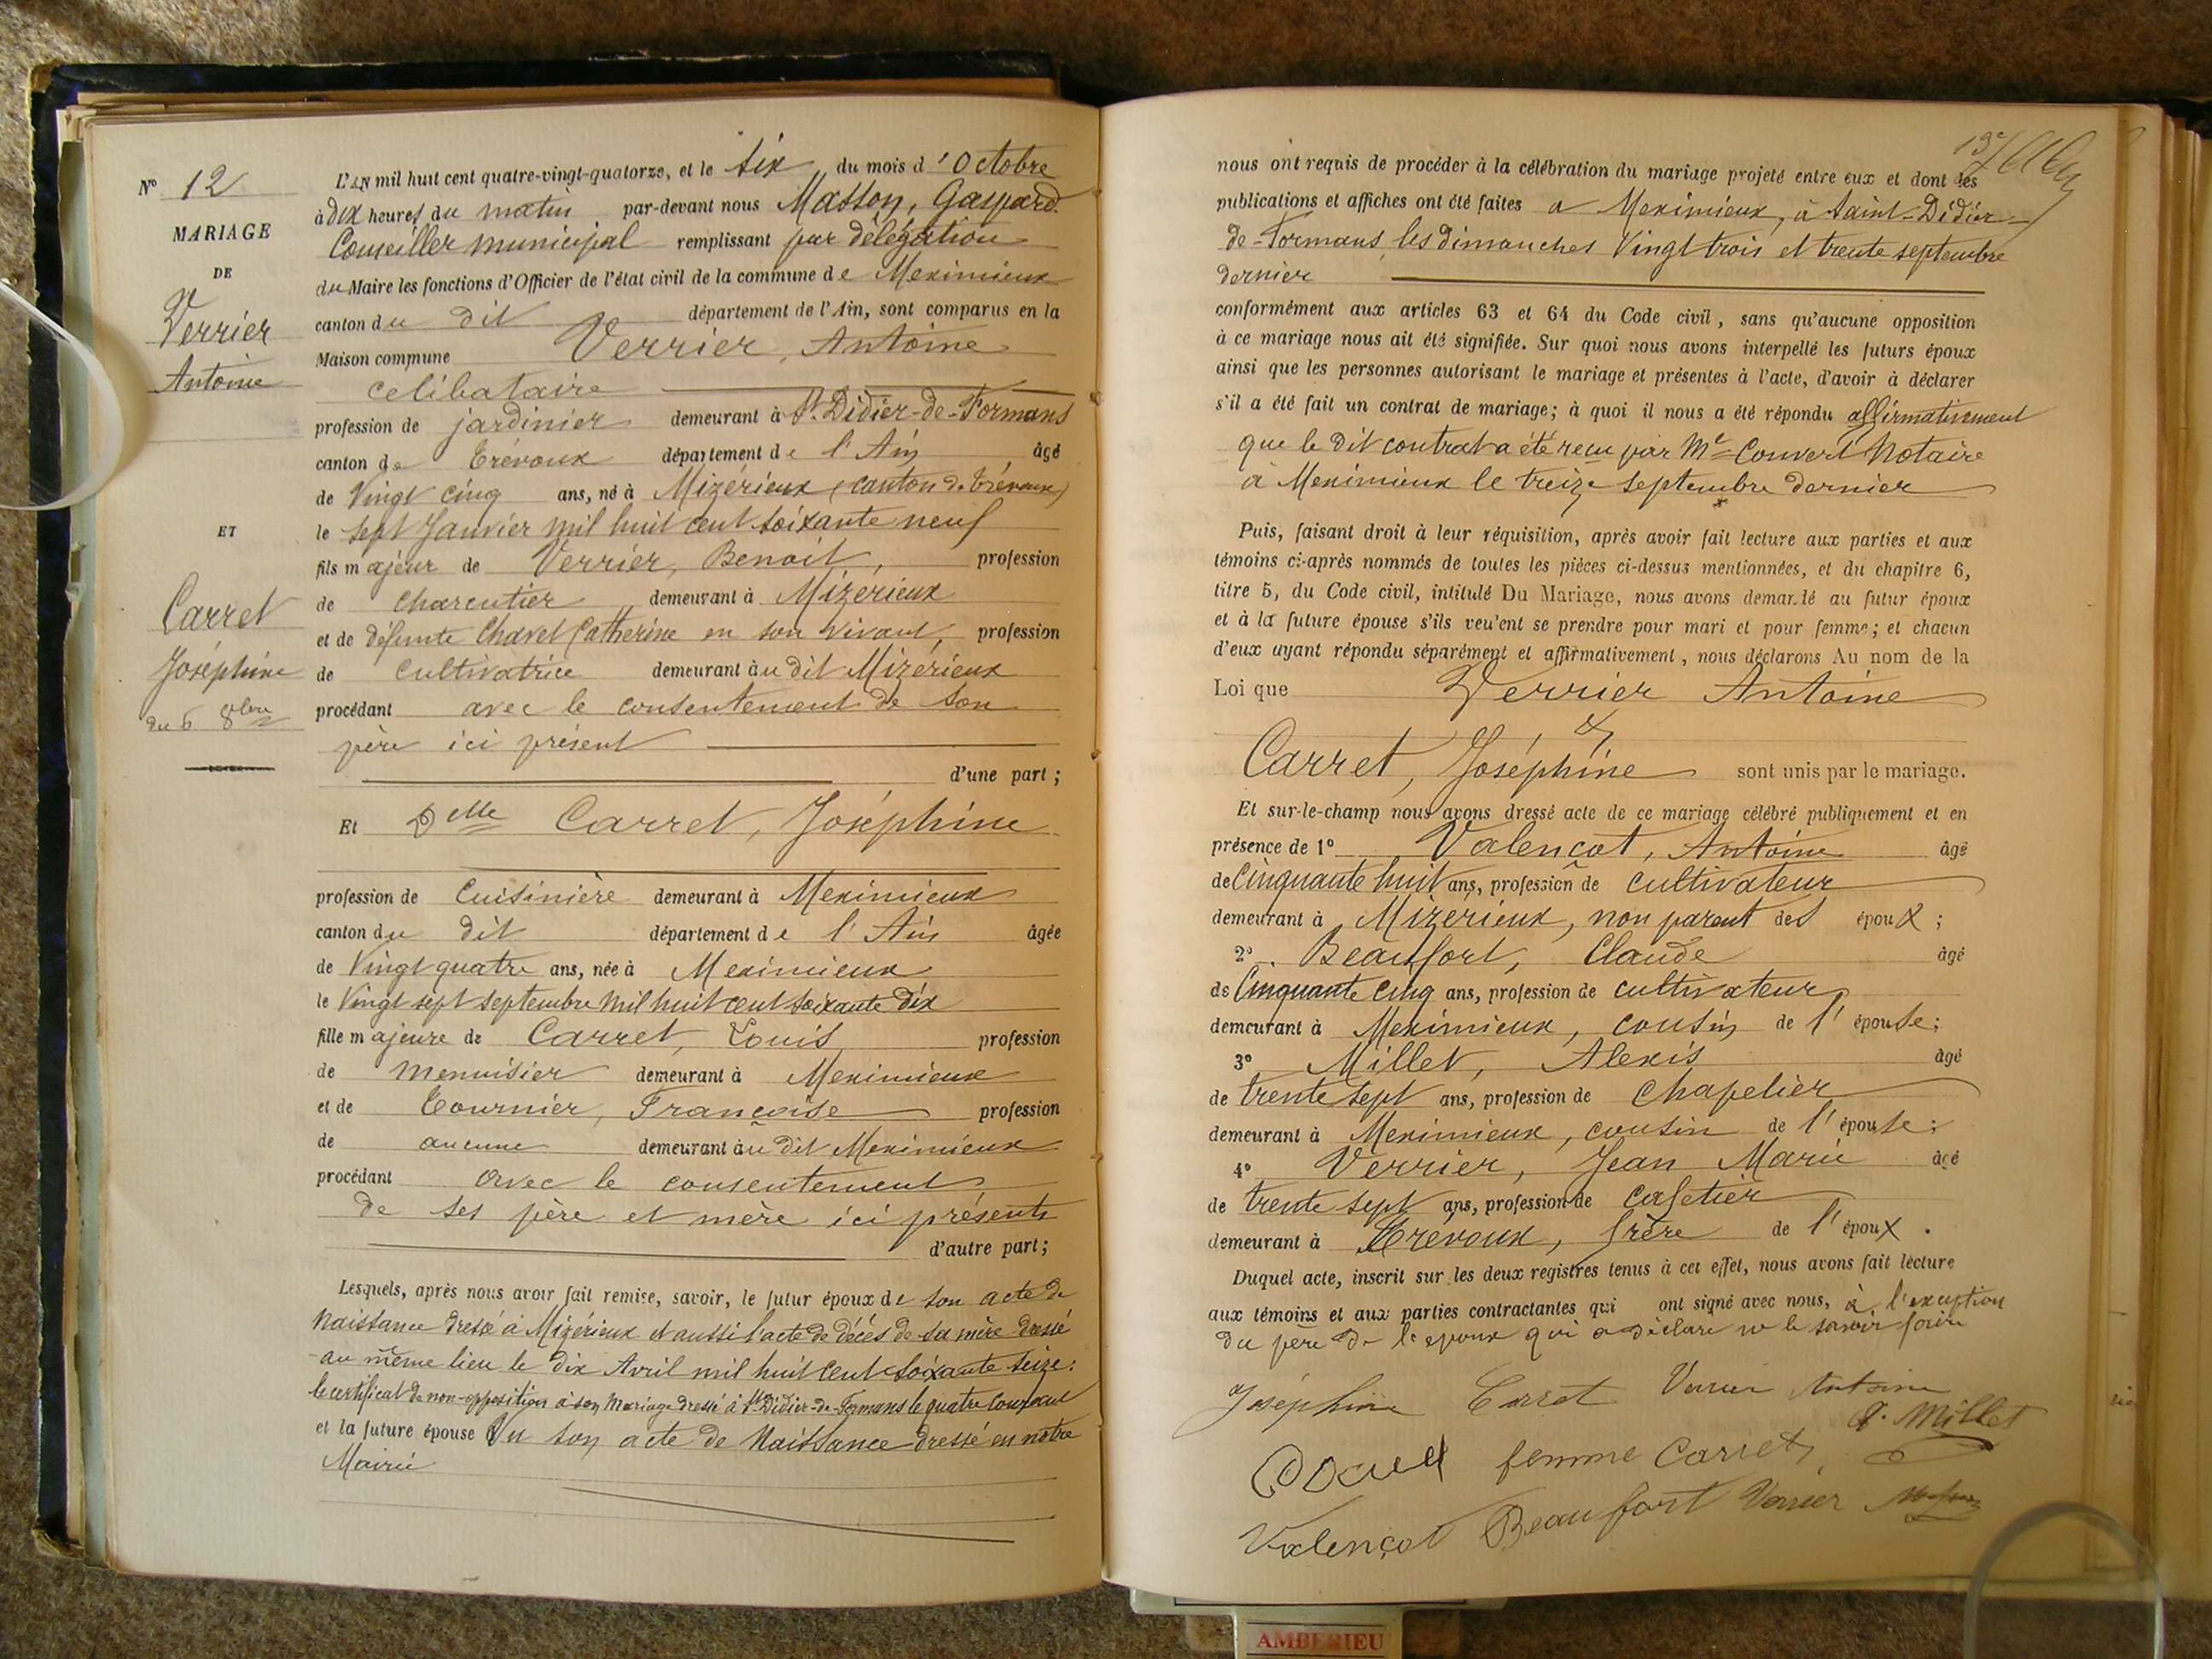 N° 12
MARIAGE
DE
Verrier
Antoine
ET
Carret
Joséphine
du 6 8bre
L'AN mil huit cent quatre-vingt-quatorze, et le six du mois d'Octobre
à dix heures du matin par-devant nous Masson, Gaspard
Conseiller municipal remplissant par délégation
du Maire les fonctions d'Officier de l'état civil de la commune de Meximieux
canton du dit département de l'Ain, sont comparus en la
Maison commune Verrier, Antoine
celibataire
profession de jardinier demeurant à St. Didier-de-Formans
canton de Trévoux département de l'Ain âgé
de Vingt cinq ans, né à Mizérieux (canton de Trévoux)
le sept Janvier mil huit cent soixante neuf
fils majeur de Verrier, Benoit, profession
de charentier demeurant à Mizérieux
et de défunte Chavet Catherine en son vivant, profession
de cultivatrice demeurant au dit Mizérieux
procédant avec le consentement de son
père ici présent
d'une part ;
Et Delle Carret, Joséphine
profession de Cuisinière demeurant à Meximieux
canton du dit département de l'Ain âgée
de Vingt quatre ans, née à Meximieux
le Vingt sept septembre mil huit cent soixante dix
fille majeure de Carret, Louis profession
de menuisier demeurant à Meximieux
et de Tournier, Françoise profession
de aucune demeurant au dit Meximieux
procédant avec le consentement
de ses père et mère ici présents
d'autre part ;
Lesquels, après nous avoir fait remise, savoir, le futur époux de son acte de
Naissance dressé à Mizérieux et aussi l'acte de décès de sa mère dressé
au même lieu le dix Avril mil huit cent soixante seize :
le certificat de non-opposition à son mariage dressé à St Didier-de-Formans le quatre courant
et la future épouse Vu son acte de Naissance dressé en notre
Mairie
13e
nous ont requis de procéder à la célébration du mariage projeté entre eux et dont les
publications et affiches ont été faites a Meximieux, à Saint-Didier-
de-Formans les dimanches Vingt trois et trente septembre
dernier
conformément aux articles 63 et 64 du Code civil, sans qu'aucune opposition
à ce mariage nous ait été signifiée. Sur quoi nous avons interpellé les futurs époux
ainsi que les personnes autorisant le mariage et présentes à l'acte, d'avoir à déclarer
s'il a été fait un contrat de mariage; à quoi il nous a été répondu affirmativement
que le dit contrat a été recu par Me Convert Notaire
à Meximieux le treize septembre dernier
Puis, faisant droit à leur réquisition, après avoir fait lecture aux parties et aux
témoins ci-après nommés de toutes les pièces ci-dessus mentionnées, et du chapitre 6,
titre 5, du Code civil, intitulé Du Mariage, nous avons demandé au futur époux
et à la future épouse s'ils veulent se prendre pour mari et pour femme; et chacun
d'eux ayant répondu séparément et affirmativement, nous déclarons Au nom de la
Loi que Verrier Antoine
&
Carret, Joséphine sont unis par le mariage.
Et sur-le-champ nous avons dressé acte de ce mariage célébré publiquement et en
présence de 1° Valençot, Antoine âgé
de Cinquante huit ans, profession de cultivateur
demeurant à Mizérieux, non parent des époux ;
2° Beaufort, Claude âgé
de Cinquante cinq ans, profession de cultivateur,
demeurant à Meximieux, cousin de l'épouse ;
3° Millet, Alexis âgé
de trente sept ans, profession de Chapelier
demeurant à Meximieux, cousin de l'épouse ;
4° Verrier, Jean Marie âgé
de trente sept ans, profession de cafetier
demeurant à Trévoux, frère de l'époux.
Duquel acte, inscrit sur les deux registres tenus à cet effet, nous avons fait lecture
aux témoins et aux parties contractantes qui ont signé avec nous, à l'exception
du père de l'epoux qui a déclaré ne le savoir faire
Joséphine Carret Verrier Antoine
A. Millet
femme Carret
Valençot Beaufort Verrier Masson
AMBERIEU